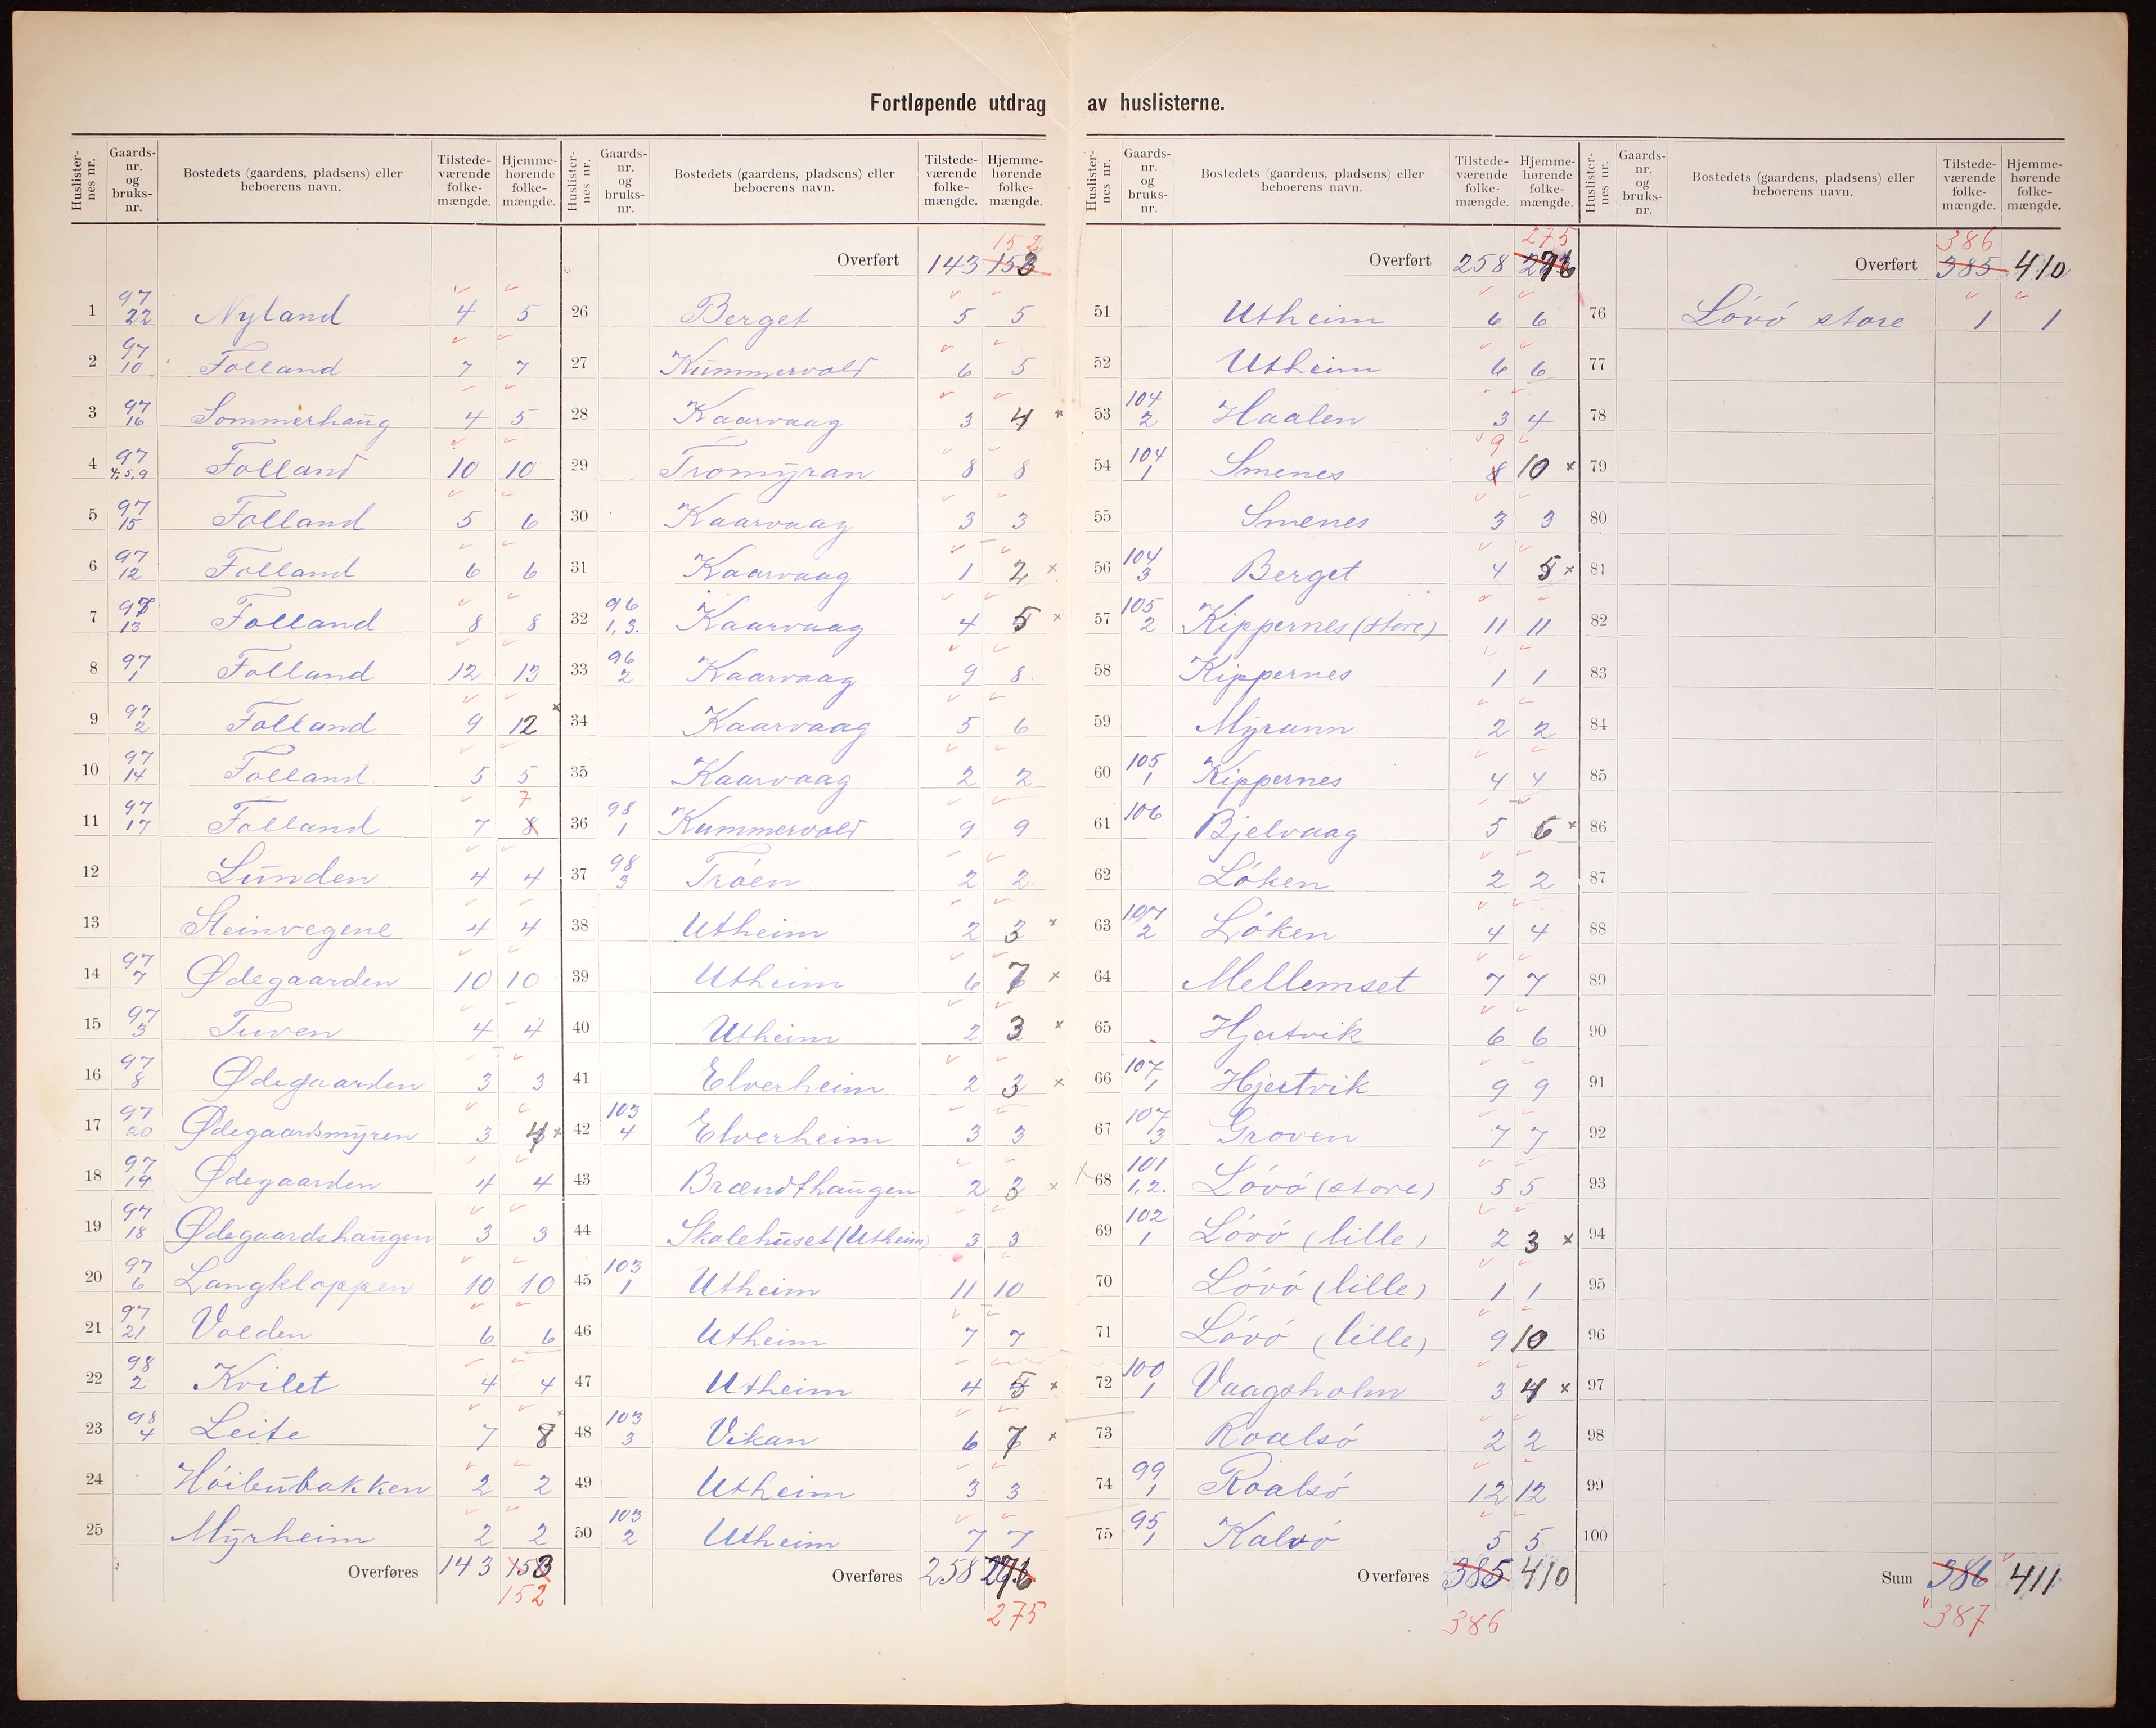 Fortløpende utdrag av huslisterne.
Huslister-nes nr. Gaards-nr. og bruks-nr. Bostedets (gaardens, pladsens) eller beboerens navn. Tilstede-værende folke-mængde. Hjemme-hørende folke-mængde.
1 97/22 Nyland 4 5
2 97/10 Folland 7 7
3 97/16 Sommerhaug 4 5
4 97/4,5,9 Folland 10 10
5 97/15 Folland 5 6
6 97/12 Folland 6 6
7 97/13 Folland 8 8
8 97/1 Folland 12 13
9 97/2 Folland 9 12
10 97/14 Folland 5 5
11 97/17 Folland 7 8 7
12 Lunden 4 4
13 Steinvegene 4 4
14 97/7 Ødegaarden 10 10
15 97/3 Tuven 4 4
16 97/8 Ødegaarden 3 3
17 97/20 Ødegaardsmyren 3 4 ×
18 97/19 Ødegaarden 4 4
19 97/18 Ødegaardshaugen 3 3
20 97/6 Langkloppen 10 10
21 97/21 Volden 6 6
22 98/2 Kvilet 4 4
23 98/4 Leite 7 8
24 Høibubakken 2 2
25 Myrheim 2 2
Overføres 143 153
152
Huslister-nes nr. Gaards-nr. og bruks-nr. Bostedets (gaardens, pladsens) eller beboerens navn. Tilstede-værende folke-mængde. Hjemme-hørende folke-mængde.
152
Overført 143 153
26 Berget 5 5
27 Kummervold 6 5
28 Kaarvaag 3 4 ×
29 Tromyran 8 8
30 Kaarvaag 3 3
31 Kaarvaag 1 2 ×
32 96/1,3. Kaarvaag 4 5 ×
33 96/2 Kaarvaag 9 8
34 Kaarvaag 5 6
35 Kaarvaag 2 2
36 98/1 Kummervold 9 9
37 98/3 Trøen 2 2
38 Utheim 2 3 ×
39 Utheim 6 7 ×
40 Utheim 2 3 ×
41 Elverheim 2 3 ×
42 103/4 Elverheim 3 3
43 Brændthaugen 2 3 ×
44 Skolehuset (Utheim) 3 3
45 103/1 Utheim 11 10
46 Utheim 7 7
47 Utheim 4 5 ×
48 103/3 Vikan 6 7 ×
49 Utheim 3 3
50 103/2 Utheim 7 7
Overføres 258 276
275
Huslister-nes nr. Gaards-nr. og bruks-nr. Bostedets (gaardens, pladsens) eller beboerens navn. Tilstede-værende folke-mængde. Hjemme-hørende folke-mængde.
275
Overført 258 276
51 Utheim 6 6
52 Utheim 6 6
53 104/2 Haalen 3 4
54 104/1 Smenes 8 9 10 ×
55 Smenes 3 3
56 104/3 Berget 4 5 ×
57 105/2 Kippernes (store) 11 11
58 Kippernes 1 1
59 Myrann 2 2
60 105/1 Kippernes 4 4
61 106 Bjelvaag 5 6 ×
62 Løken 2 2
63 107/2 Løken 4 4
64 Mellemset 7 7
65 Hjertvik 6 6
66 107/1 Hjertvik 9 9
67 107/3 Groven 7 7
× 68 101/1,2. Løvø (store) 5 5
69 102/1 Løvø (lille) 2 3 ×
70 Løvø (lille) 1 1
71 Løvø (lille) 9 10
72 100/1 Vaagsholm 3 4 ×
73 Roalsø 2 2
74 99/1 Roalsø 12 12
75 95/1 Kalvø 5 5
Overføres 385 410
386
Huslister-nes nr. Gaards-nr. og bruks-nr. Bostedets (gaardens, pladsens) eller beboerens navn. Tilstede-værende folke-mængde. Hjemme-hørende folke-mængde.
386
Overført 385 410
76 Løvø store 1 1
77
78
79
80
81
82
83
84
85
86
87
88
89
90
91
92
93
94
95
96
97
98
99
100
Sum 386 411
387